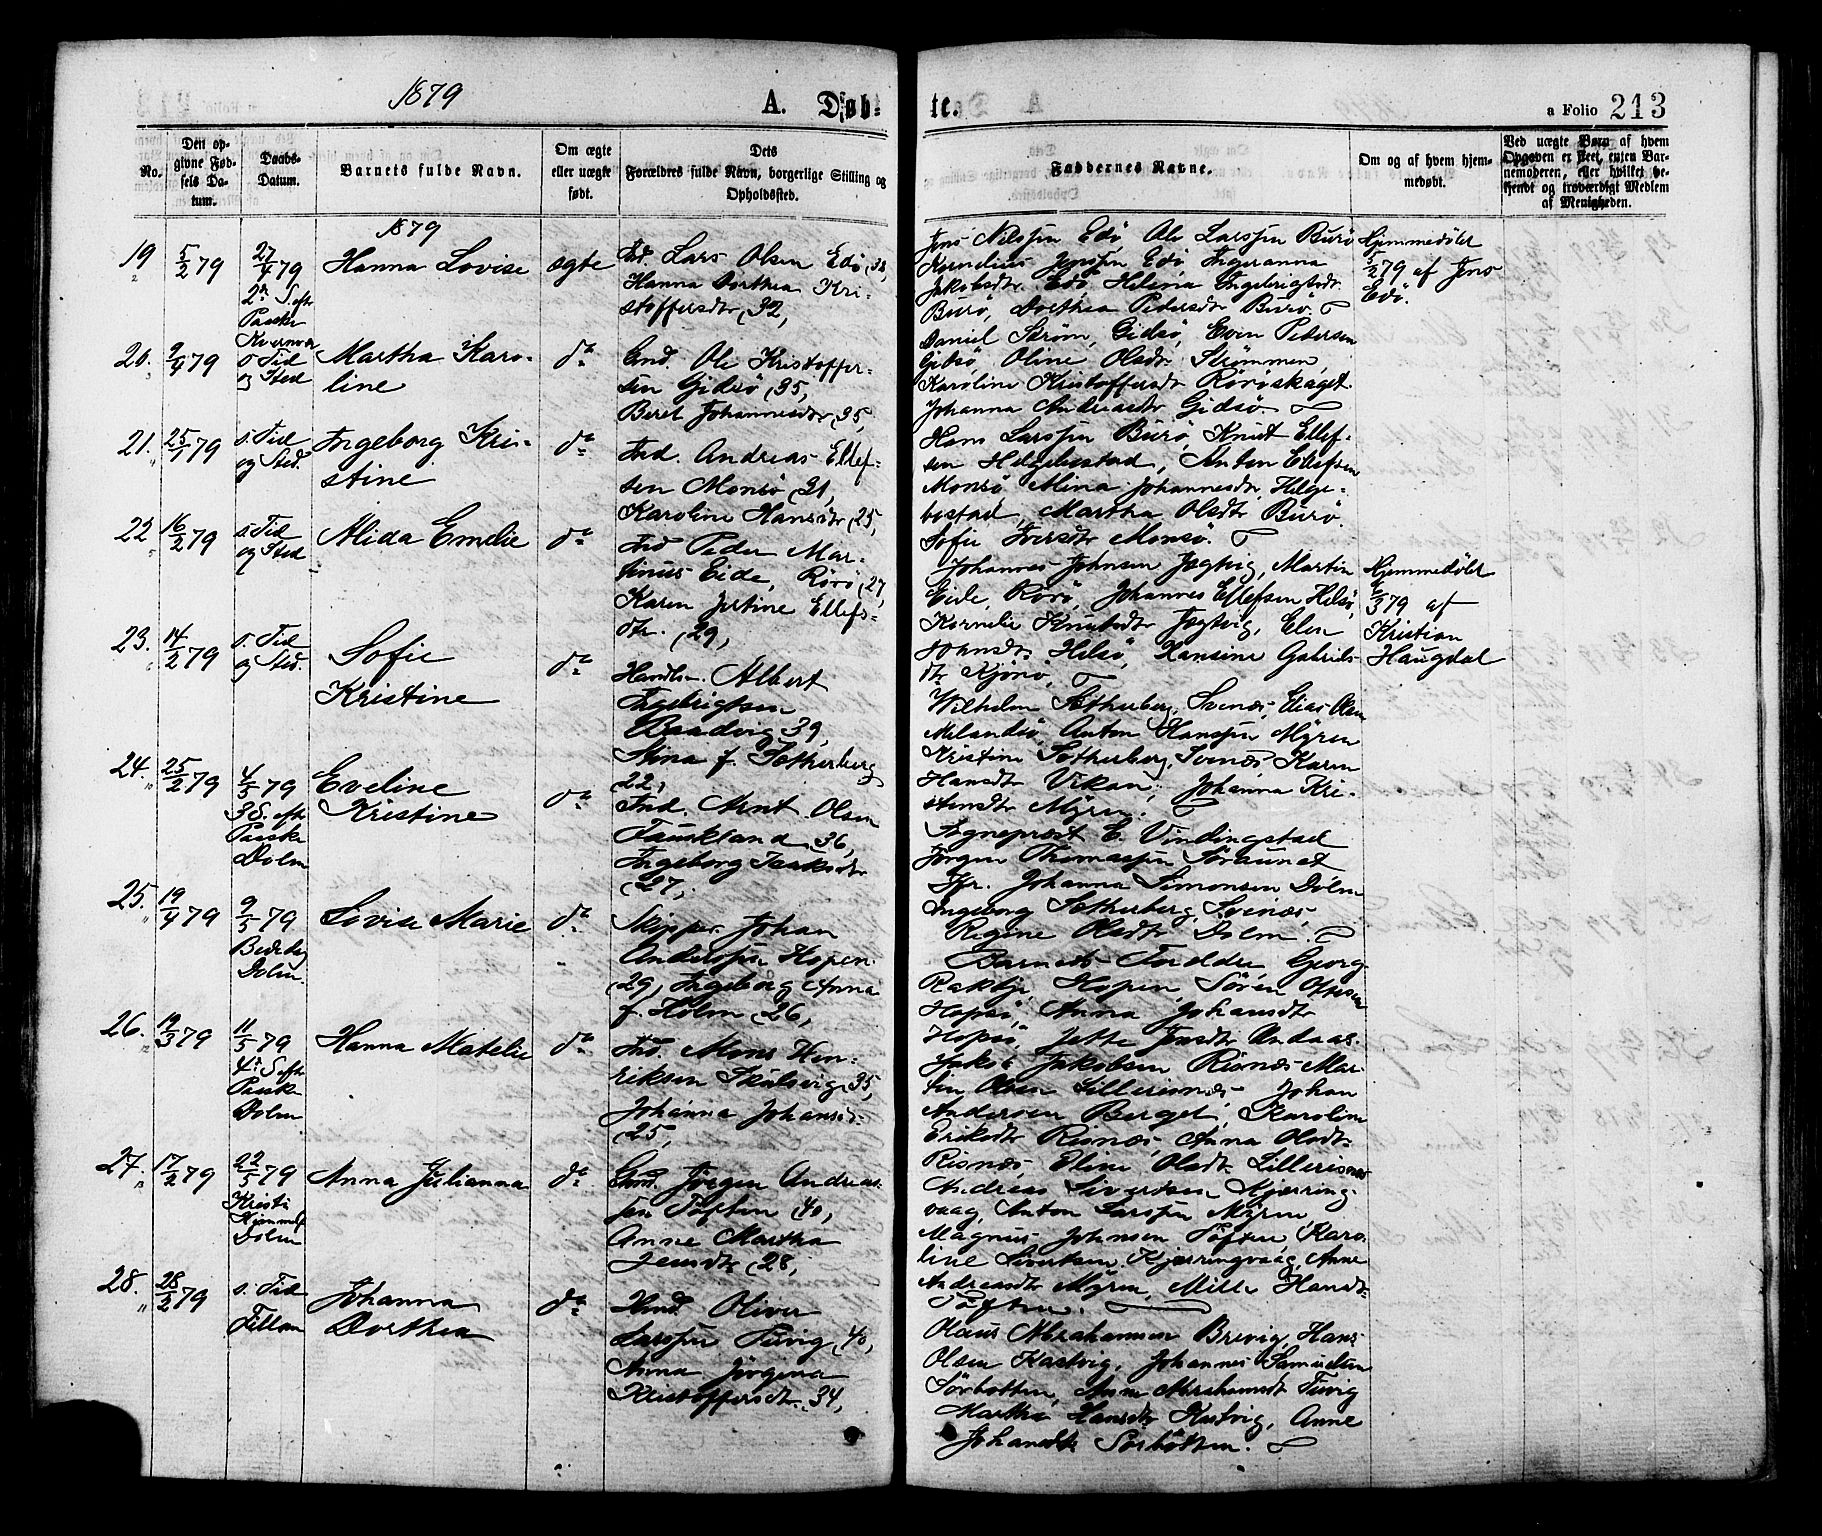 1879
A. Døb-
No.
Den op-
givne Fød-
sels Da-
tum.
Daabs-
Datum.
Barnets fulde Navn.
Om ægte
eller uægte
født.
Dets
Forældres fulde Navn, borgerlige Stilling og
Opholdssted.
1879
19
5/2 79
27/4 79
2den S. eft.
Paaske
Kvernvær
Hanna Lovise
ægte
Ind. Lars Olsen Edø (38,
Hanna Dorthea Kri-
stoffersdtr (32,
20.
9/4 79
s. Tid
og Sted
Martha Karo-
line
do
Ind. Ole Kristoffer-
sen Gidsø (35,
Beret Johannesdtr (35,
21.
25/1 79
s. Tid
og Sted.
Ingeborg Kri-
stine
do
Ind. Andreas Ellef-
sen Monsø (31,
Karoline Hansdtr (25,
22
16/2 79
s. Tid
og Sted
Alida Emelie
do
Ind Peder Mar-
tinus Eide, Rørø (27,
Karen Jertine Ellefs-
dtr. (29,
23.
14/2 79
s. Tid
og Sted.
Sofie
Kristine
do
Handlsm. Albert
Ingebrigtsen
Baadvig 39,
Stina f. Sætherberg
22,
24.
25/2 79
4/5 79
3 S. eft.
Paaske
Dolm
Eveline
Kristine
do
Ind. Arnt Olsen
Fauskland 36,
Ingeborg Isaksdtr
(27,
25.
19/4 79
9/5 79
Bededag
Dolm
Lovise Marie
do
Skipper Johan
Anderssen Hopen
(29, Ingeborg Anna
f. Holm (26,
26.
19/3 79
11/5 79
4de S eft
Paaske
Dolm
Hanna Matelie
do
Ind. Mons Hen-
riksen Skulsvig 35,
Johanna Johansd.
(25,
27.
17/2 79
22/5 79
Kristi
Himmelf
Dolm
Anna Julianna
do
Gmd. Jörgen Andreas-
sen Töften (40,
Anne Martha
Jensdtr (28,
28.
28/2 79
s. Tid
Fillan
Johanna
Dorthea
do
Ind. Oliver
Larssen Tuvig (40,
Anna Jörgina
Kristoffersdtr. 34,
te.
a Folio 213
Faddernes Navne.
Om og af hvem hjem-
medøbt.
Ved uægte Børn af hvem
Opgaven er skeet, enten Bar-
nemoderen, eller hvilket be-
kjendt og troværdigt Medlem
af Menigheden.
Jens Nilssen Edø, Ole Larssen Burø
Kornelius Jenssen Edø Ingeranna
Jakobsdtr Edø, Helena Ingebrigtsdtr
Burø, Dorthea Pedersdtr Burø.
Hjemmedøbt
5/2 79 af Jens
Edø.
Daniel Strøm, Gidsø, Even Pedersen
Gidsø, Oline Olsdtr Strømmen,
Karoline Kristoffersdtr Rørøskaget
Johanna Andreasdtr Gidsø.
Hans Larssen Burø, Knut Ellef-
sen Helgebustad, Anton Ellefsen
Monsø, Mina Johannesdtr Helge-
bostad, Martha Olsdtr Burø.
Sofie Iversdtr Monsø.
Johannes Johnsen Jægtvig, Martin
Eide, Rørø, Johannes Ellefsen Helsø,
Kornelie Knutsdtr Jægtvig, Elen
Hansdtr Helsø, Hansine Gabriels-
dtr Kjönö,
Hjemmedøbt
/3 79 af
Kristian
Haugdal
Wilhelm Sætherberg, Svenæs, Elias Olsen
Melandsö, Anton Hanssen Myren
Kristine Sætherberg, Svenæs Karen
Hansdtr Vikan, Johanna Kri-
stensdtr Myren.
Sogneprest E. Vindingstad
Jörgen Thomassen Soraunet
Ffr. Johanna Simonsen Dolm
Ingeborg Sætherberg, Svenæs,
Regine Olsdtr Dolm.
Barnets Fader, Georg
Rakbje, Hopen, Sören Ottesen
Hopsö, Anna Johansdtr
Hopsö, Jette Jensdtr Ondaas.
Jakob Jakobsen Risnæs Mar-
tin Olsen Lillerisnæs Johan
Andersen Berget, Karoline
Eriksdtr Risnæs Anna Olsdtr
Risnæs Eline Olsdtr Lillerisnæs
Andreas Sivertsen Kjerring-
vaag, Anton Larssen Myren
Magnus Johnsen Töften, Karo-
line Sivertsen, Kjerringvaag, Anne
Andreasdtr Myren, Mille Hansdtr
Töften.
Olaus Abrahamsen Brevig, Hans
Olsen Kastvig, Johannes Samuelsen
Sörbotten, Anne Abrahamsdtr Tuvig
Martha Hansdtr Kastvig, Anne
Johansdtr Sörbotten.